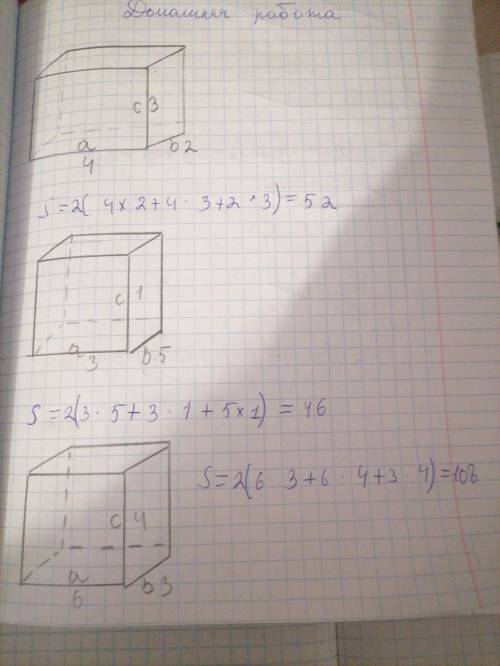 Домашняя работа
c 3
a
b 2
4
S=2( 4×2+4·3+2·3)=52
c 1
a
3
b 5
S=2(3·5+3·1+5×1)=46
S=2(6·3+6·4+3·4)=108
c 4
a
6
b 3